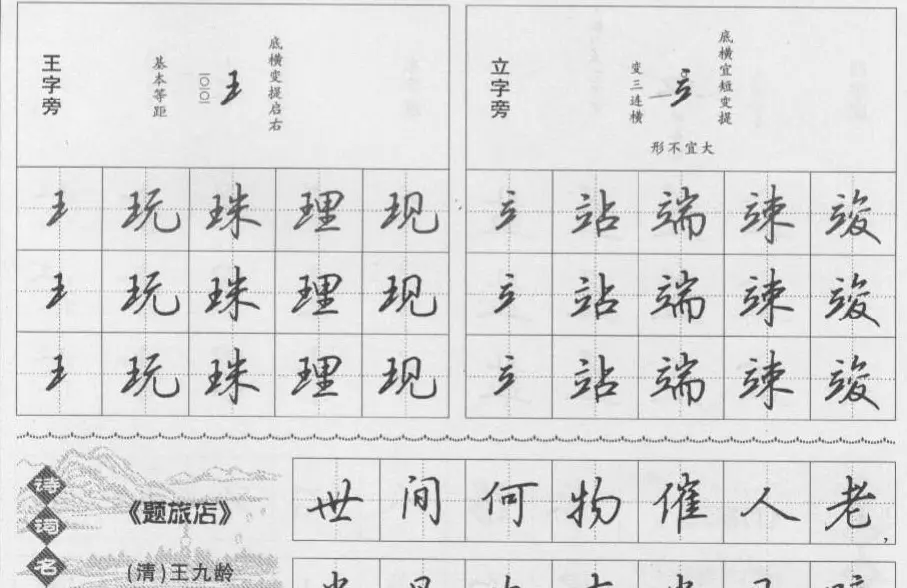 王字旁
基本等距
底横变提启右
王玩珠理现
王玩珠理现
王玩珠理现
立字旁
变三连横
底横宜短变提
形不宜大
立站端竦竣
立站端竦竣
立站端竦竣
诗词名
《题旅店》
(清)王九龄
世间何物催人老,